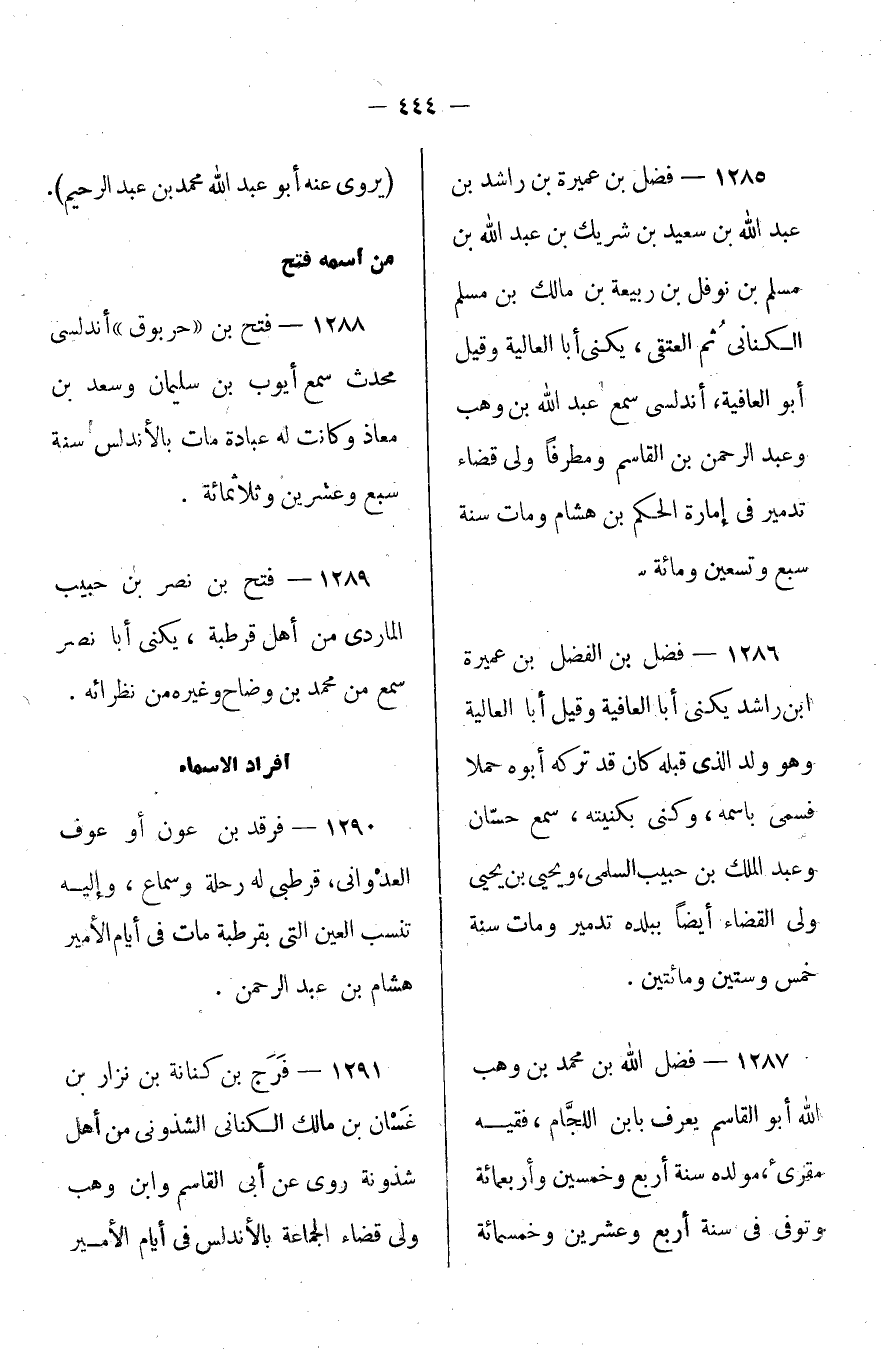 — ٤٤٤ —
١٢٨٥ — فضل بن عميرة بن راشد بن
عبد الله بن سعيد بن شريك بن عبد الله بن
مسلم بن نوفل بن ربيعة بن مالك بن مسلم
الكنانى ثم العتقى ، يكنى أبا العالية وقيل
أبو العافية، أندلسى سمع عبد الله بن وهب
وعبد الرحمن بن القاسم ومطرفاً ولى قضاء
تدمير فى إمارة الحكم بن هشام ومات سنة
سبع وتسعين ومائة .
١٢٨٦ — فضل بن الفضل بن عميرة
ابن راشد يكنى أبا العافية وقيل أبا العالية
وهو ولد الذى قبله كان قد تركه أبوه حملا
فسمى باسمه ، وكنى بكنيته ، سمع حسّان
وعبد الملك بن حبيب السلمى، ويحيى بن يحيى
ولى القضاء أيضاً ببلده تدمير ومات سنة
خمس وستين ومائتين .
١٢٨٧ — فضل الله بن محمد بن وهب
الله أبو القاسم يعرف بابن اللجَّام ، فقيه
مقرىء، مولده سنة أربع وخمسين وأربعمائة
وتوفى فى سنة أربع وعشرين وخمسمائة
(يروى عنه أبو عبد الله محمد بن عبد الرحيم).
من اسمه فتح
١٢٨٨ — فتح بن «حربوق» أندلسى
محدث سمع أيوب بن سليمان وسعد بن
معاذ وكانت له عبادة مات بالأندلس سنة
سبع وعشرين وثلاثمائة .
١٢٨٩ — فتح بن نصر بن حبيب
الماردى من أهل قرطبة ، يكنى أبا نصر
سمع من محمد بن وضاح وغيره من نظرائه .
أفراد الاسماء
١٢٩٠ — فرقد بن عون أو عوف
العدوانى، قرطبى له رحلة وسماع ، وإليه
تنسب العين التى بقرطبة مات فى أيام الأمير
هشام بن عبد الرحمن .
١٢٩١ — فَرَج بن كنانة بن نزار بن
غَسْان بن مالك الكنانى الشذونى من أهل
شذونة روى عن أبى القاسم وابن وهب
ولى قضاء الجماعة بالأندلس فى أيام الأمير